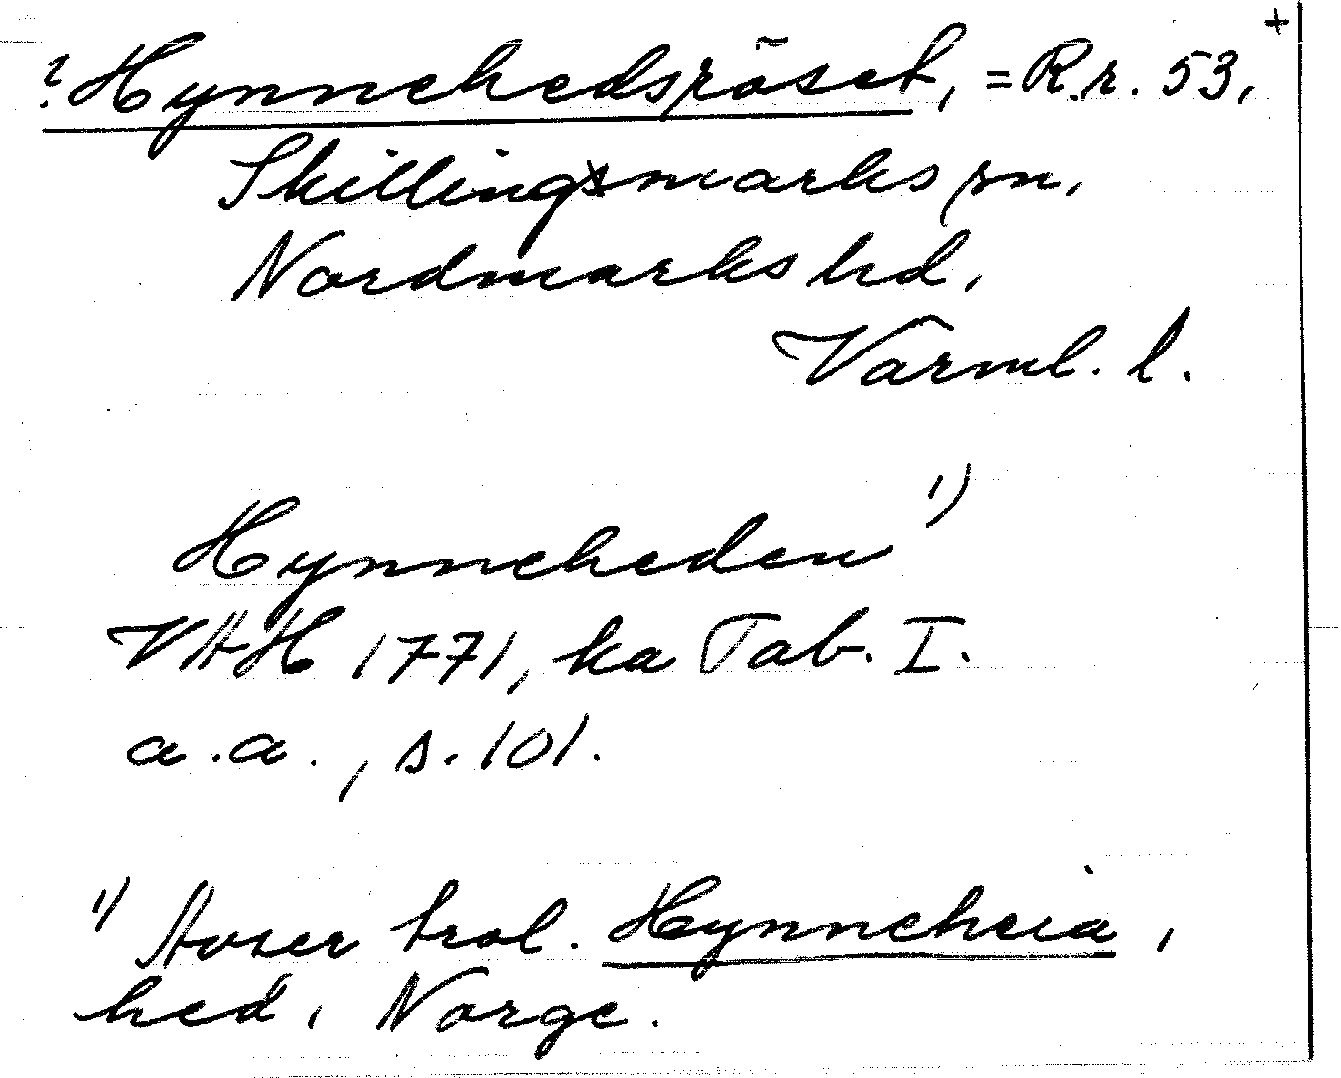 +
? Hynnehedsröset, = R.r. 53,
Skillingsmarks sn,
Nordmarks hd,
Värml. l.
Hynneheden 1)
VAH 1771, ka Tab. I.
a.a., s. 101.
1) Avser trol. Hynneheia,
hed i Norge.